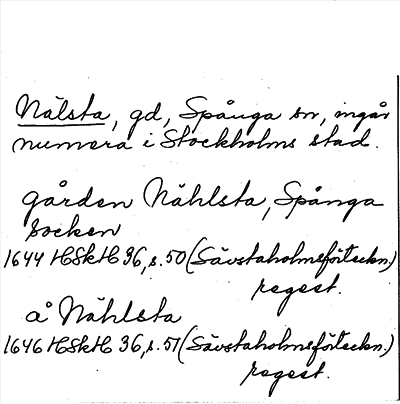 Nälsta, gd, Spånga sn, ingår
numera i Stockholms stad.
gården Nählsta, Spånga
socken
1644 HSkH 36, s. 50 (Sävstaholmsförteckn.)
regest.
å Nählsta
1646 HSkH 36, s. 51 (Sävstaholmsförteckn.)
regest.